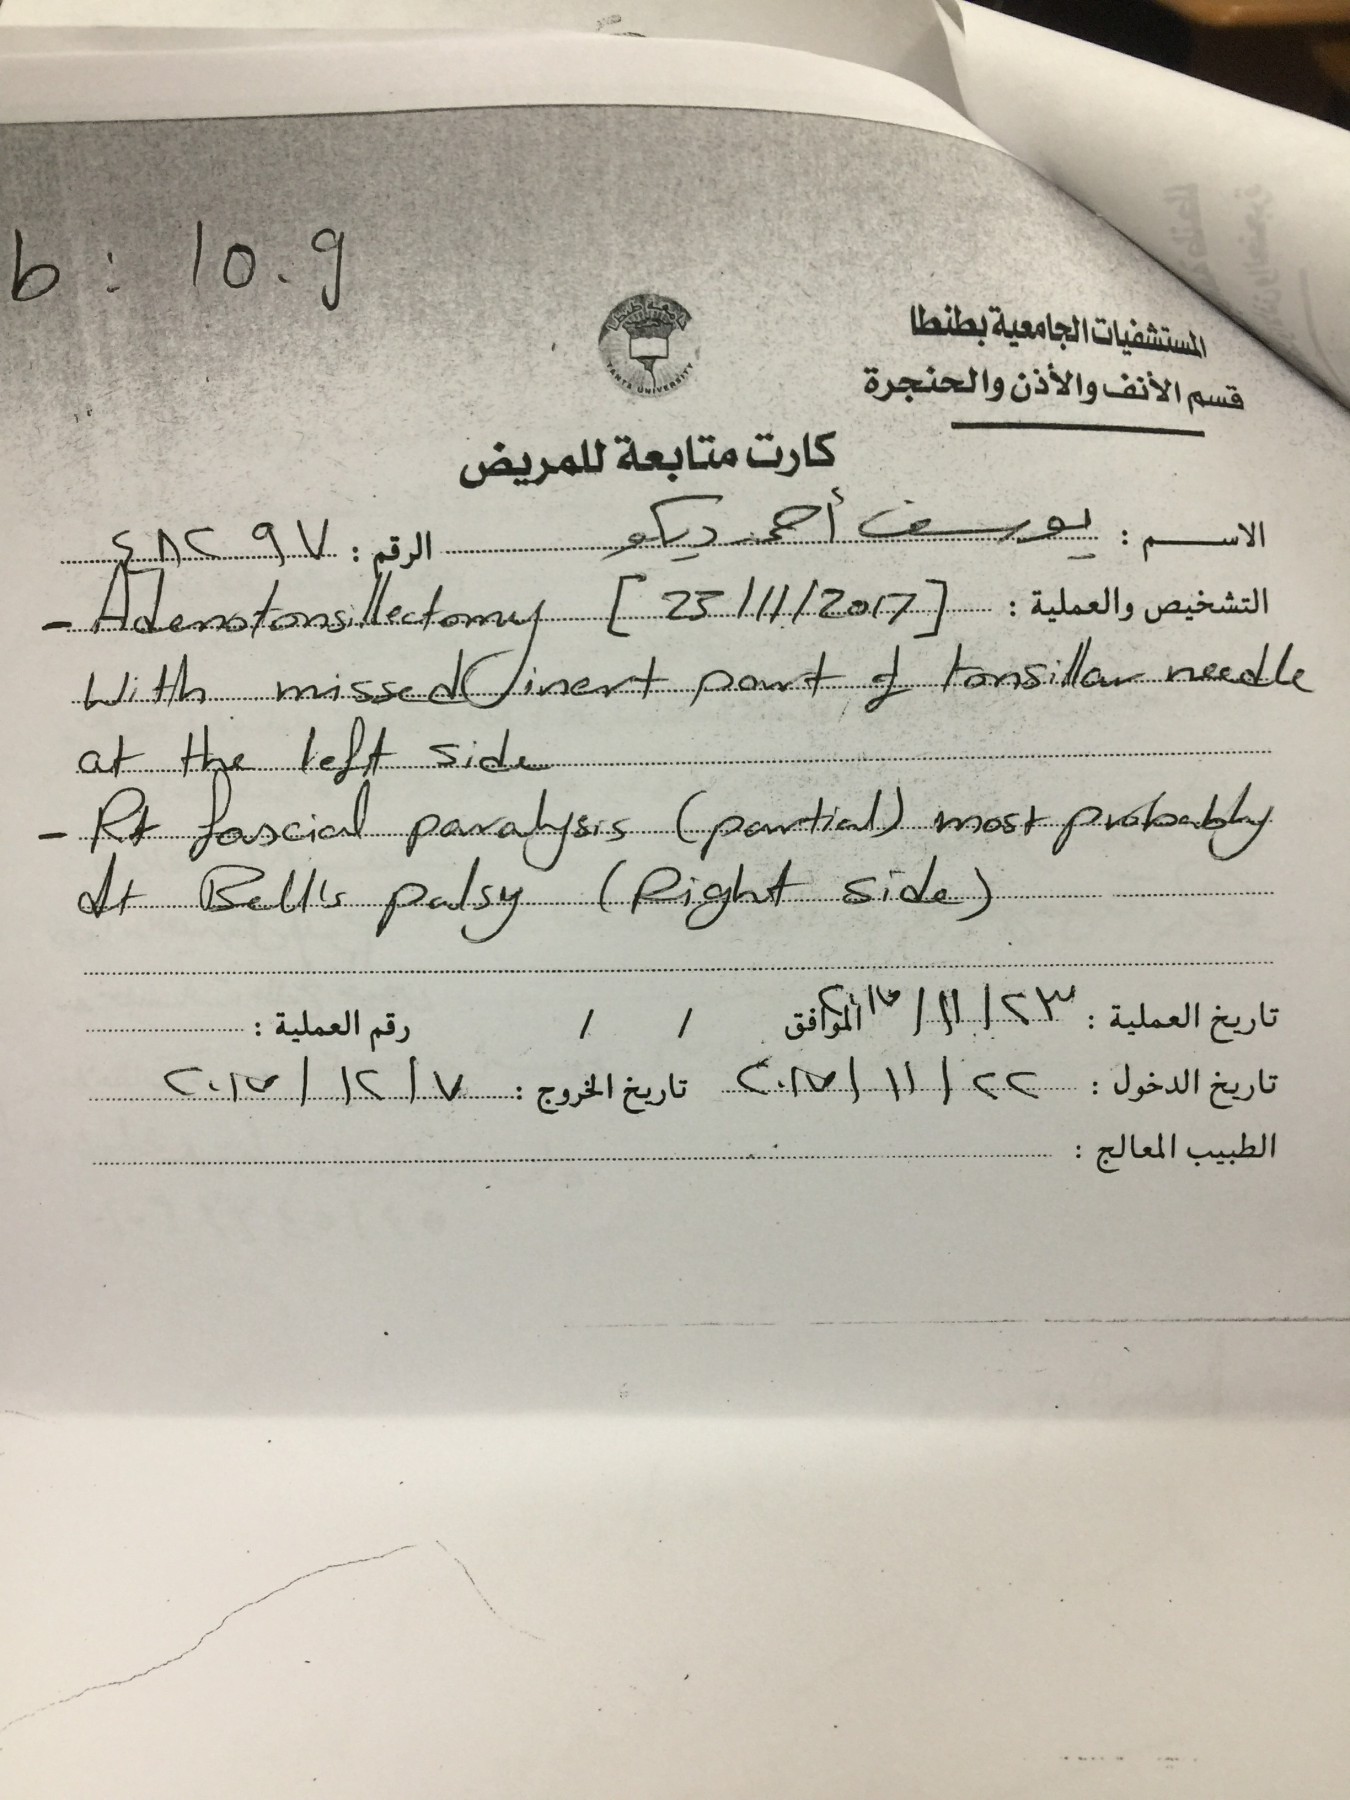 b : 10.9
المستشفيات الجامعية بطنطا
قسم الأنف والأذن والحنجرة
جامعة طنطا
TANTA UNIVERSITY
كارت متابعة للمريض
الاسم : يوسف أحمد ديكو الرقم : ٤٨٢٩٧
التشخيص والعملية :
- Adenotonsillectomy [23/11/2017]
with missed inert part of tonsillar needle
at the left side
- Rt fascial paralysis (partial) most probably
dt Bell's palsy (Right side)
تاريخ العملية : ٢٣/١١/٢٠١٧ الموافق / / رقم العملية :
تاريخ الدخول : ٢٢/١١/٢٠١٧ تاريخ الخروج : ٧/١٢/٢٠١٧
الطبيب المعالج :